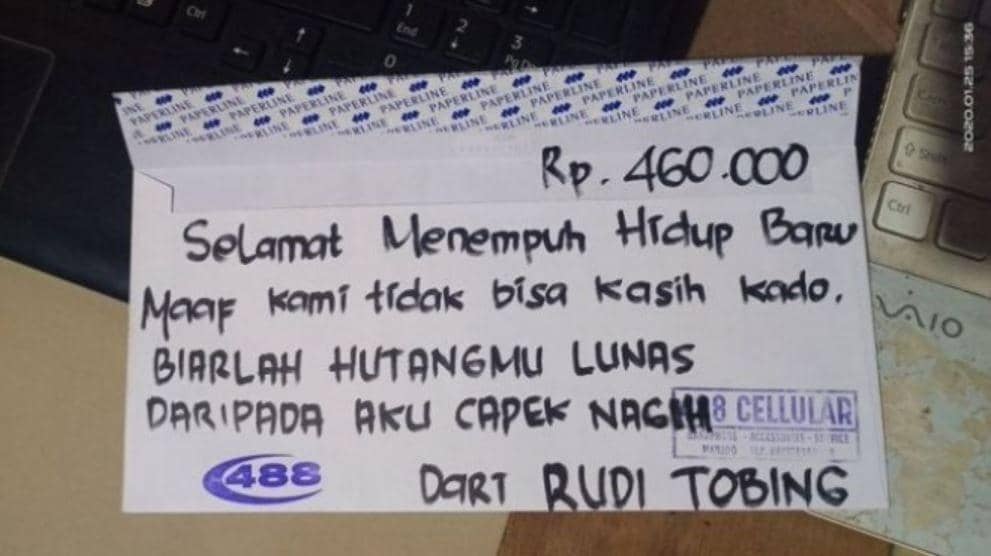 Ctrl
1
End
2
3
0
2020.01.25 15:36
PAPERLINE PAPERLINE PAPERLINE PAPERLINE PAPERLINE PAPERLINE
Rp. 460.000
Selamat Menempuh Hidup Baru
Maaf kami tidak bisa kasih kado.
BIARLAH HUTANGMU LUNAS
DARIPADA AKU CAPEK NAGIH
8 CELLULAR
488
Dari RUDI TOBING
Shift
Ctrl
VAIO